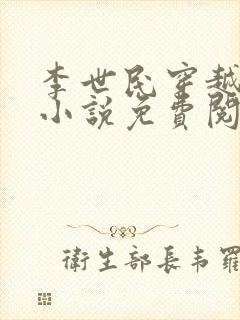 李世民穿越
小說免費閱
衛生部長韦羅